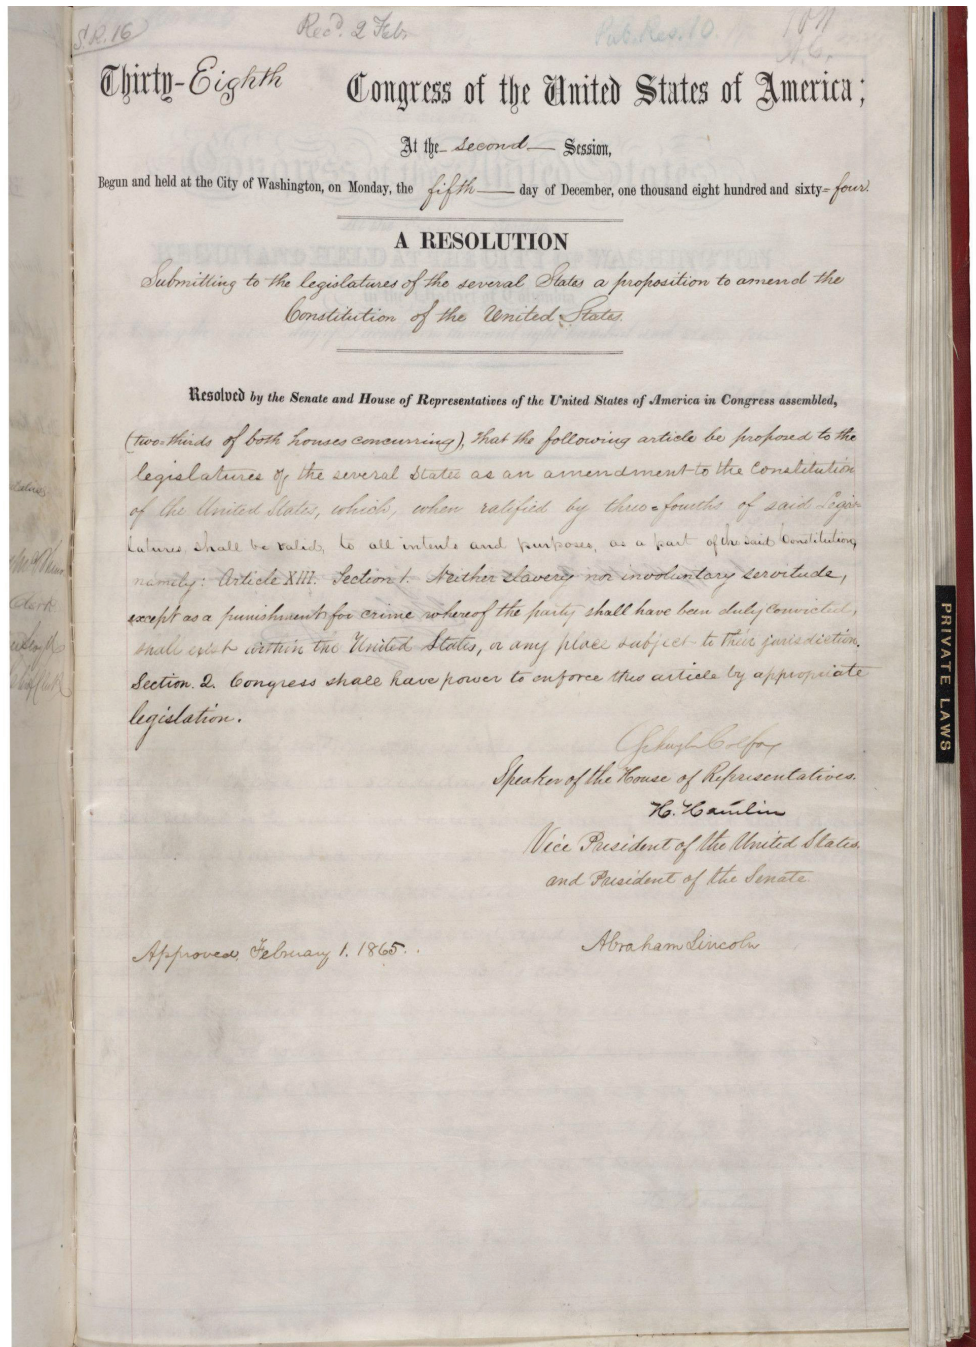 S.R. 16
Rec'd. 2 Feb.
Pub. Res. 10.
Thirty-Eighth Congress of the United States of America;
At the second Session,
Begun and held at the City of Washington, on Monday, the fifth day of December, one thousand eight hundred and sixty-four.
A RESOLUTION
Submitting to the legislatures of the several States a proposition to amend the
Constitution of the United States.
Resolved by the Senate and House of Representatives of the United States of America in Congress assembled,
(two-thirds of both houses concurring), that the following article be proposed to the
legislatures of the several States as an amendment to the Constitution
of the United States, which, when ratified by three-fourths of said Legis-
latures, shall be valid, to all intents and purposes, as a part of the said Constitution,
namely: Article XIII. Section 1. Neither slavery nor involuntary servitude,
except as a punishment for crime whereof the party shall have been duly convicted,
shall exist within the United States, or any place subject to their jurisdiction.
Section. 2. Congress shall have power to enforce this article by appropriate
legislation.
Schuyler Colfax
Speaker of the House of Representatives.
H. Hamlin
Vice President of the United States,
and President of the Senate.
Approved, February 1. 1865.
Abraham Lincoln
PRIVATE LAWS